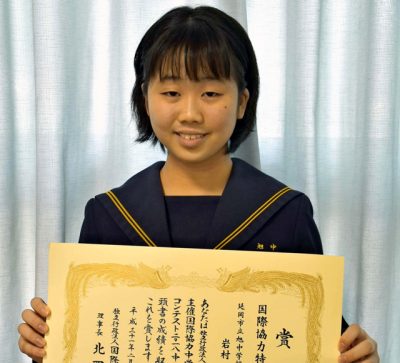 賞
国際協力特
延岡市立旭中学
岩村
あなたは独立行政法人
主催国際協力中学
コンテスト二〇一八中
頭書の成績を収
これを賞します
平成三十一年二月
独立行政法人国際
理事長　北
旭中